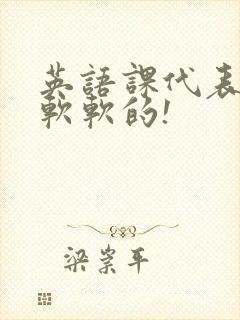 英語課代表
軟軟的!
梁崇平